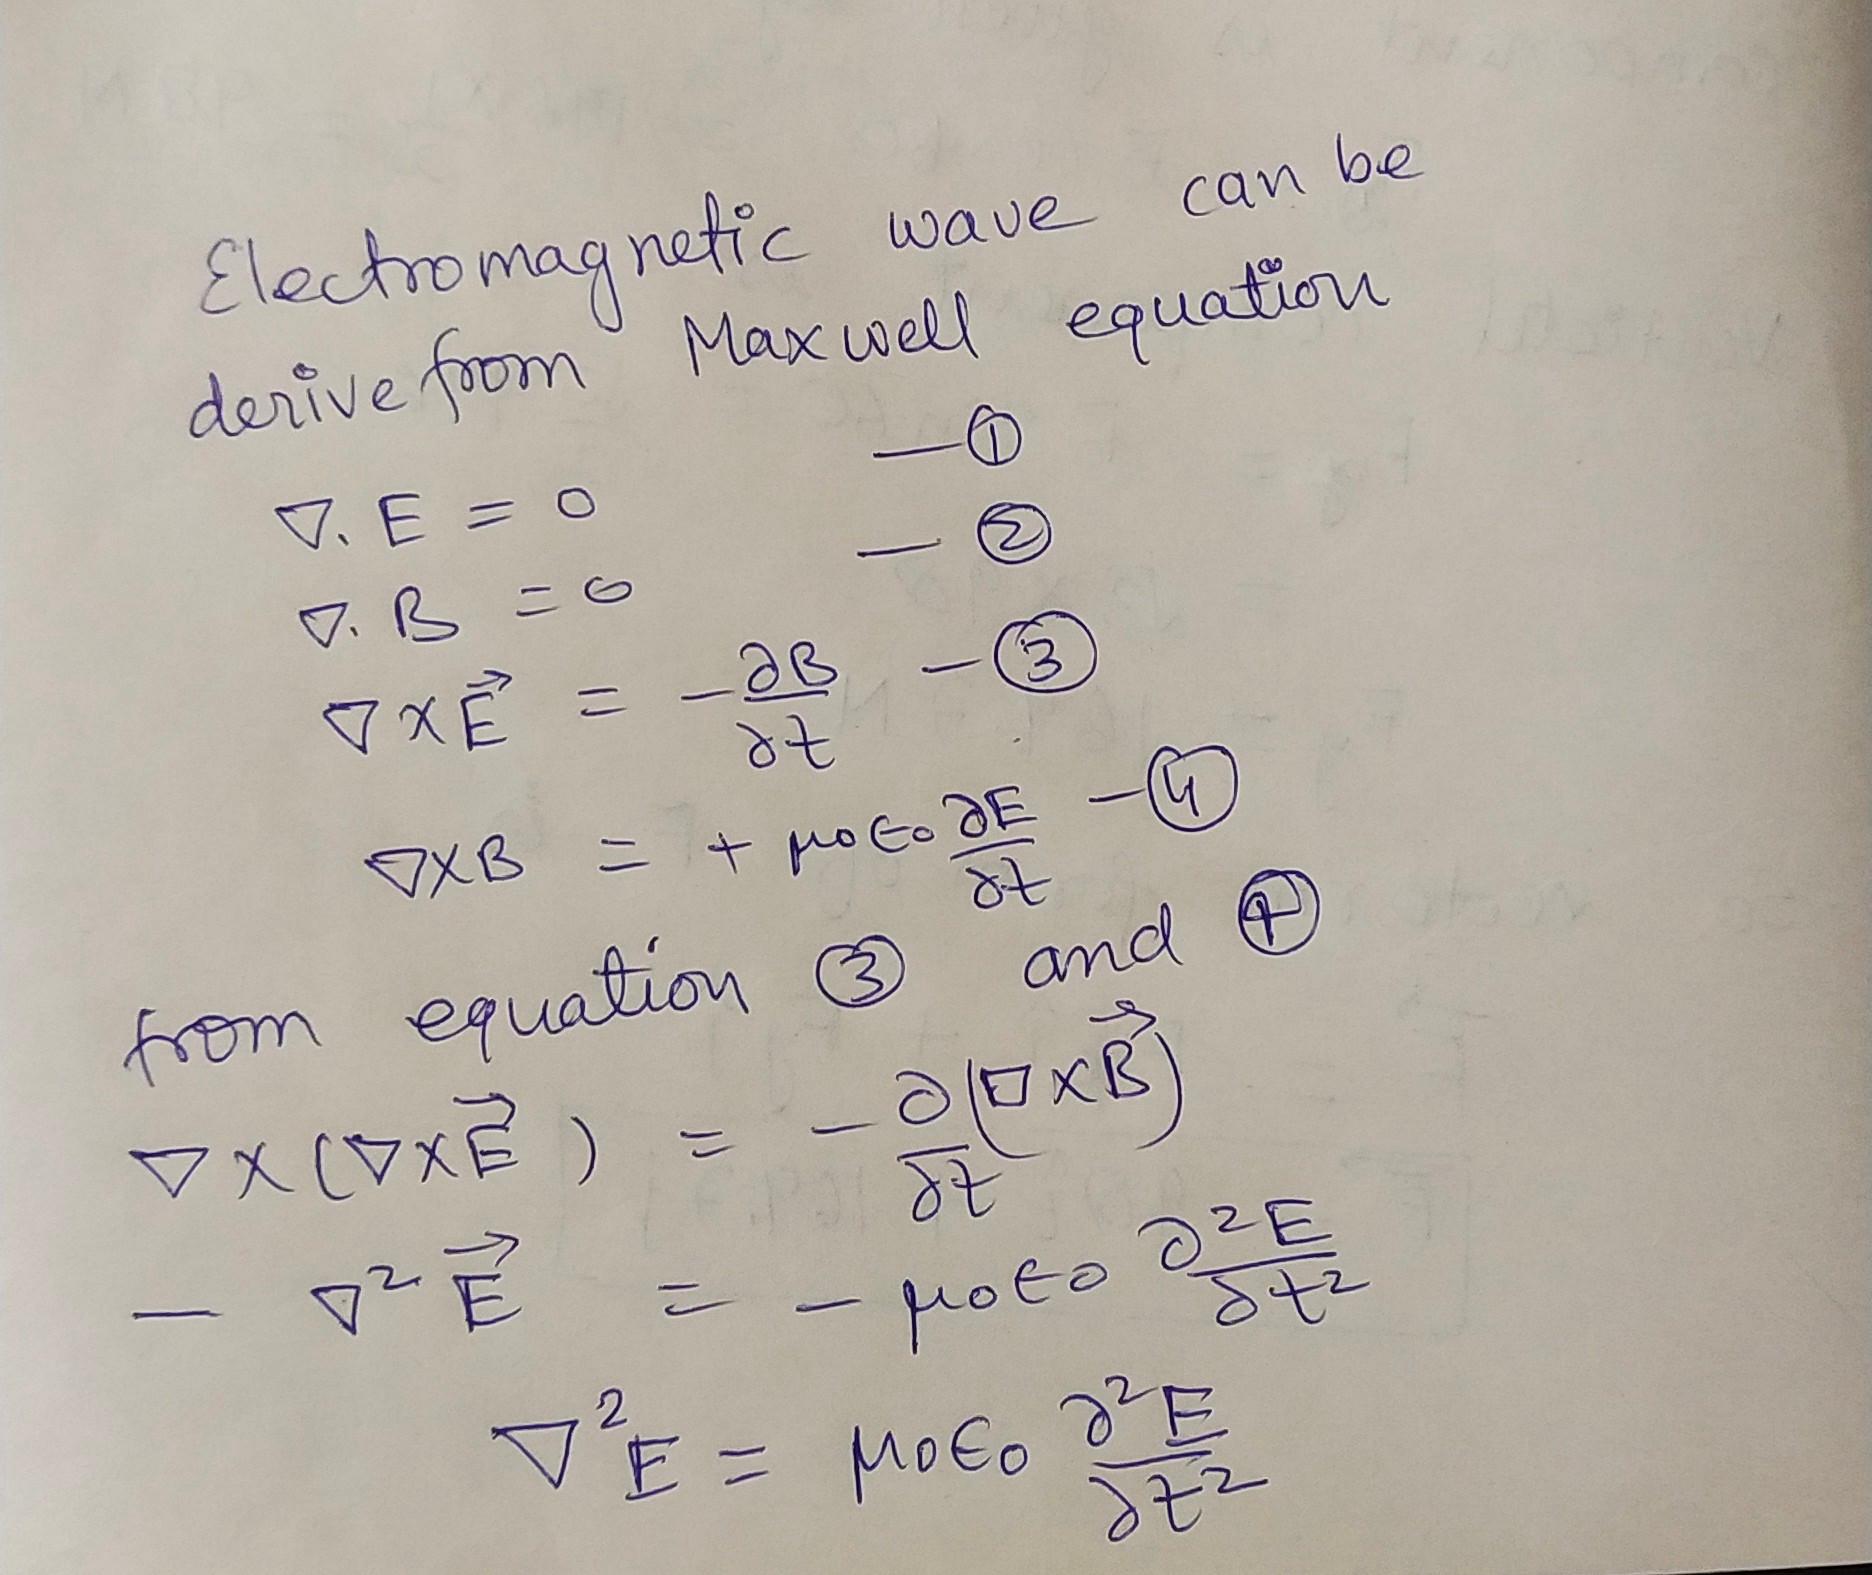 Electromagnetic wave can be
derive from Maxwell equation
∇. E = 0 — ①
∇. B = 0 — ②
∇ x E⃗ = - ∂B/∂t - ③
∇xB = + μ0 ϵ0 ∂E/∂t - ④
from equation ③ and ④
∇ x (∇xE⃗) = - ∂/∂t (∇xB⃗)
- ∇² E⃗ = - μ0ϵ0 ∂²E/∂t²
∇²E = μ0ϵ0 ∂²E/∂t²